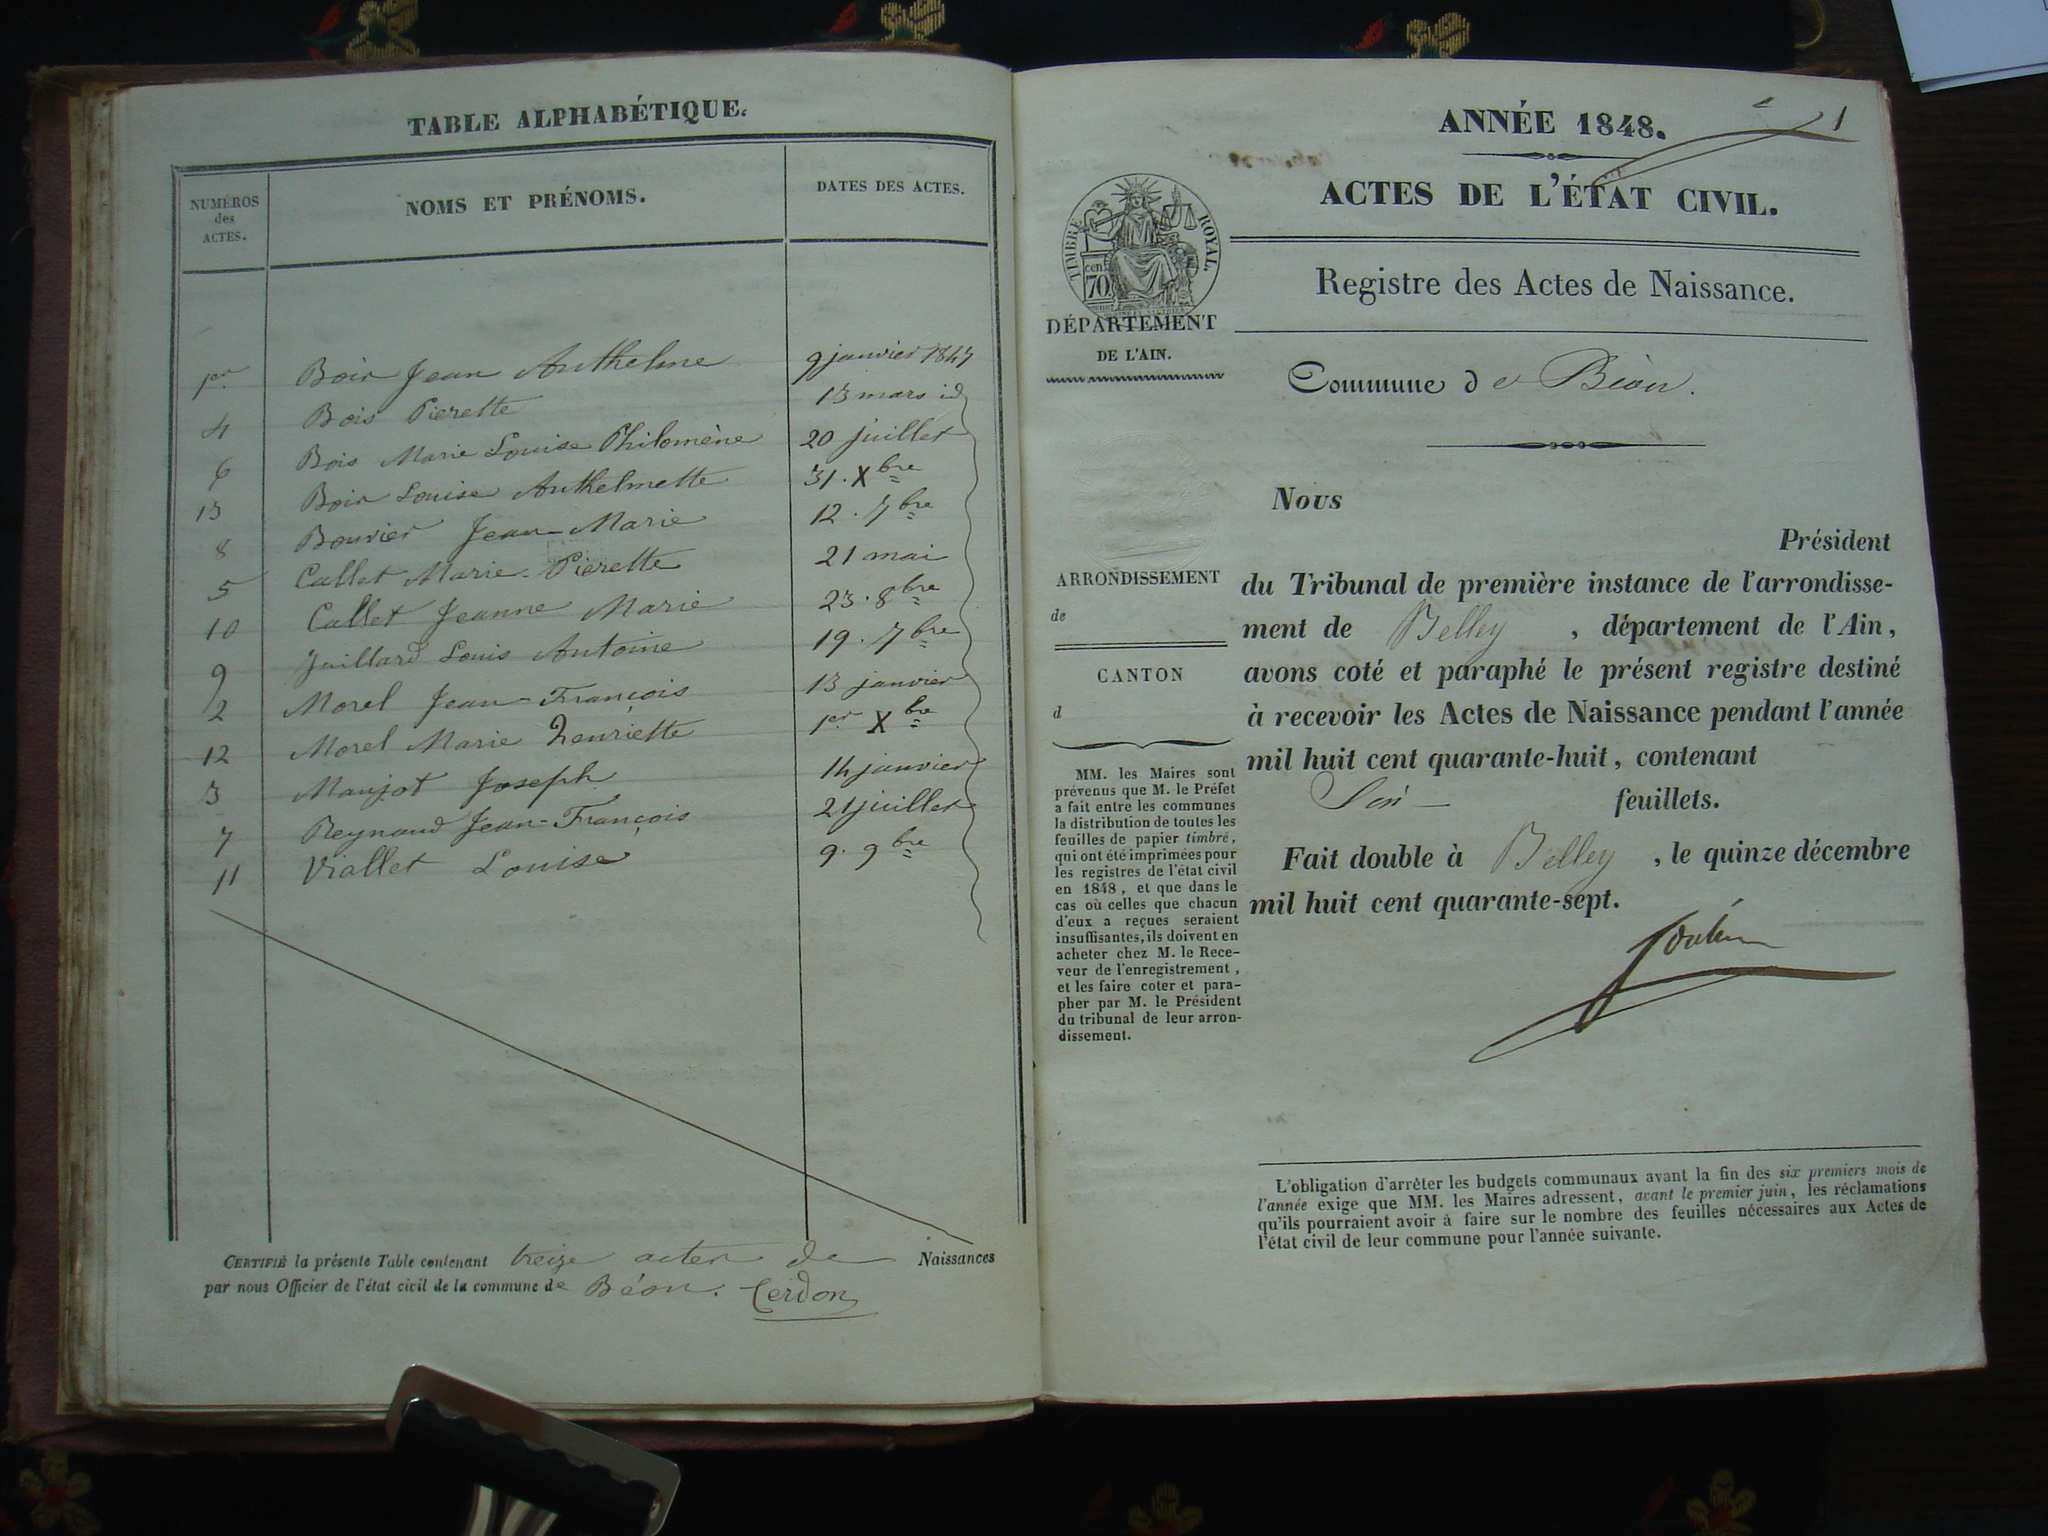 TABLE ALPHABÉTIQUE.
NUMÉROS des ACTES. NOMS ET PRÉNOMS. DATES DES ACTES.
1er Bois Jean Anthelme 9 janvier 1847
4 Bois Pierette 13 mars id
6 Bois Marie Louise Philomène 20 juillet
13 Bois Louise Anthelmette 31. Xbre
8 Bouvier Jean-Marie 12. 7bre
5 Callet Marie-Pierette 21 mai
10 Callet Jeanne Marie 23. 8bre
9 Juillard Louis Antoine 19. 7bre
2 Morel Jean-François 13 janvier
12 Morel Marie henriette 1er Xbre
3 Maujot Joseph 14 janvier
7 Reynaud Jean-François 21 juillet
11 Viallet Louise 9. 9bre
CERTIFIÉ la présente Table contenant treize actes de Naissances
par nous Officier de l'état civil de la commune de Béon. Cerdon
1
ANNÉE 1848.
ACTES DE L'ÉTAT CIVIL.
TIMBRE ROYAL.
cent
70
Registre des Actes de Naissance.
DÉPARTEMENT
DE L'AIN.
Commune de Béon.
Nous
Président
du Tribunal de première instance de l'arrondisse-
ment de Belley, département de l'Ain,
avons coté et paraphé le présent registre destiné
à recevoir les Actes de Naissance pendant l'année
mil huit cent quarante-huit, contenant
feuillets.
Fait double à Belley, le quinze décembre
mil huit cent quarante-sept.
ARRONDISSEMENT
de
CANTON
d
MM. les Maires sont
prévenus que M. le Préfet
a fait entre les communes
la distribution de toutes les
feuilles de papier timbré,
qui ont été imprimées pour
les registres de l'état civil
en 1848, et que dans le
cas où celles que chacun
d'eux a reçues seraient
insuffisantes, ils doivent en
acheter chez M. le Rece-
veur de l'enregistrement,
et les faire coter et para-
pher par M. le Président
du tribunal de leur arron-
dissement.
L'obligation d'arrêter les budgets communaux avant la fin des six premiers mois de
l'année exige que MM. les Maires adressent, avant le premier juin, les réclamations
qu'ils pourraient avoir à faire sur le nombre des feuilles nécessaires aux Actes de
l'état civil de leur commune pour l'année suivante.